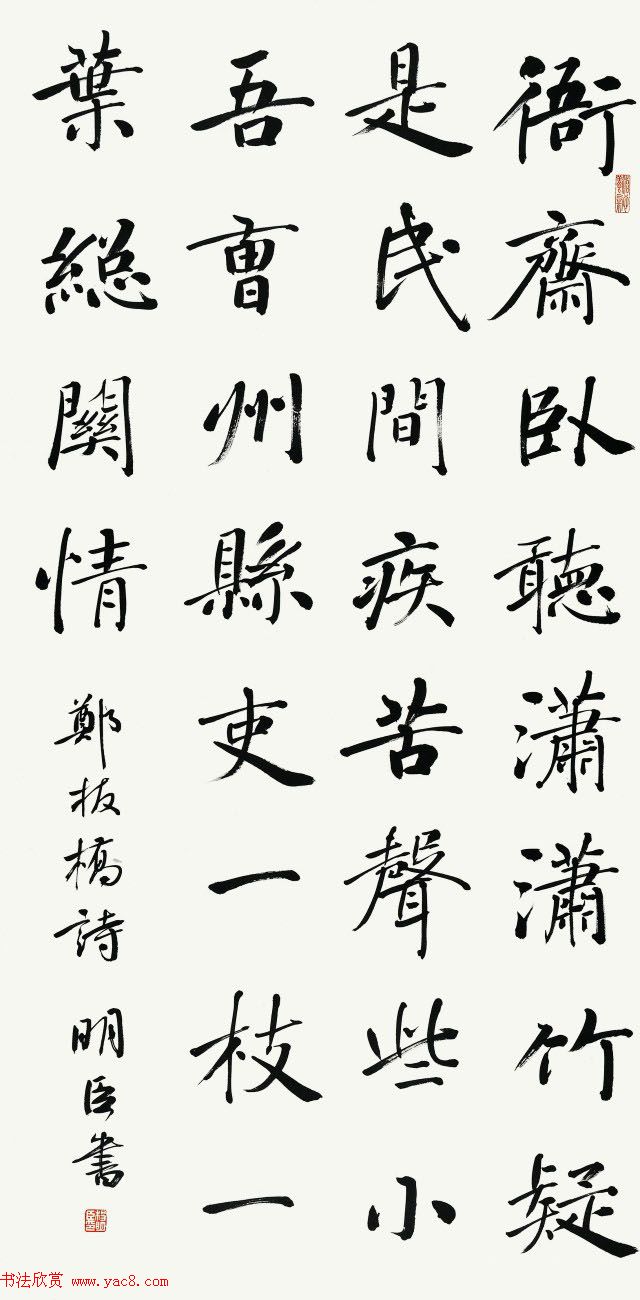 衙齋卧聽瀟瀟竹疑
是民間疾苦聲些小
吾曹州縣吏一枝一
葉總關情
鄭板橋詩 明臣書
书法欣赏 www.yac8.com